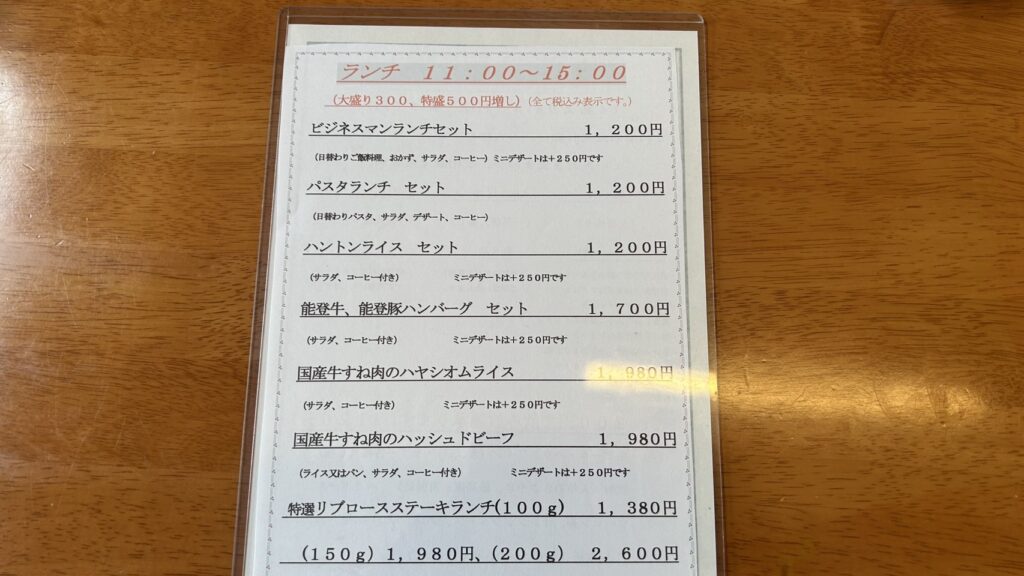 ランチ　１１：００～１５：００
（大盛り３００、特盛５００円増し）（全て税込み表示です。）
ビジネスマンランチセット　１，２００円
（日替わりご飯料理、おかず、サラダ、コーヒー）ミニデザートは＋２５０円です
パスタランチ　セット　１，２００円
（日替わりパスタ、サラダ、デザート、コーヒー）
ハントンライス　セット　１，２００円
（サラダ、コーヒー付き）　ミニデザートは＋２５０円です
能登牛、能登豚ハンバーグ　セット　１，７００円
（サラダ、コーヒー付き）　ミニデザートは＋２５０円です
国産牛すね肉のハヤシオムライス　１，９８０円
（サラダ、コーヒー付き）　ミニデザートは＋２５０円です
国産牛すね肉のハッシュドビーフ　１，９８０円
（ライス又はパン、サラダ、コーヒー付き）　ミニデザートは＋２５０円です
特選リブロースステーキランチ(１００ｇ）　１，３８０円
（１５０ｇ）１，９８０円、（２００ｇ）　２，６００円